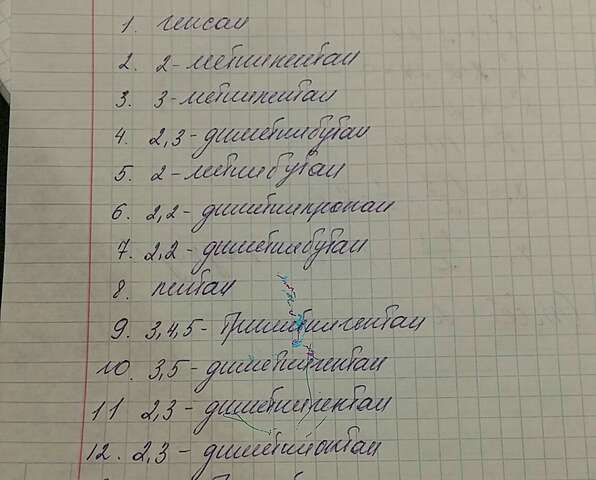 1. гексан
2. 2-метилпентан
3. 3-метилпентан
4. 2,3-диметилбутан
5. 2-метилбутан
6. 2,2-диметилпропан
7. 2,2-диметилбутан
8. пентан
9. 3,4,5-триметилгептан
10. 3,5-диметилгептан
11 2,3-диметилпентан
12. 2,3-диметилоктан